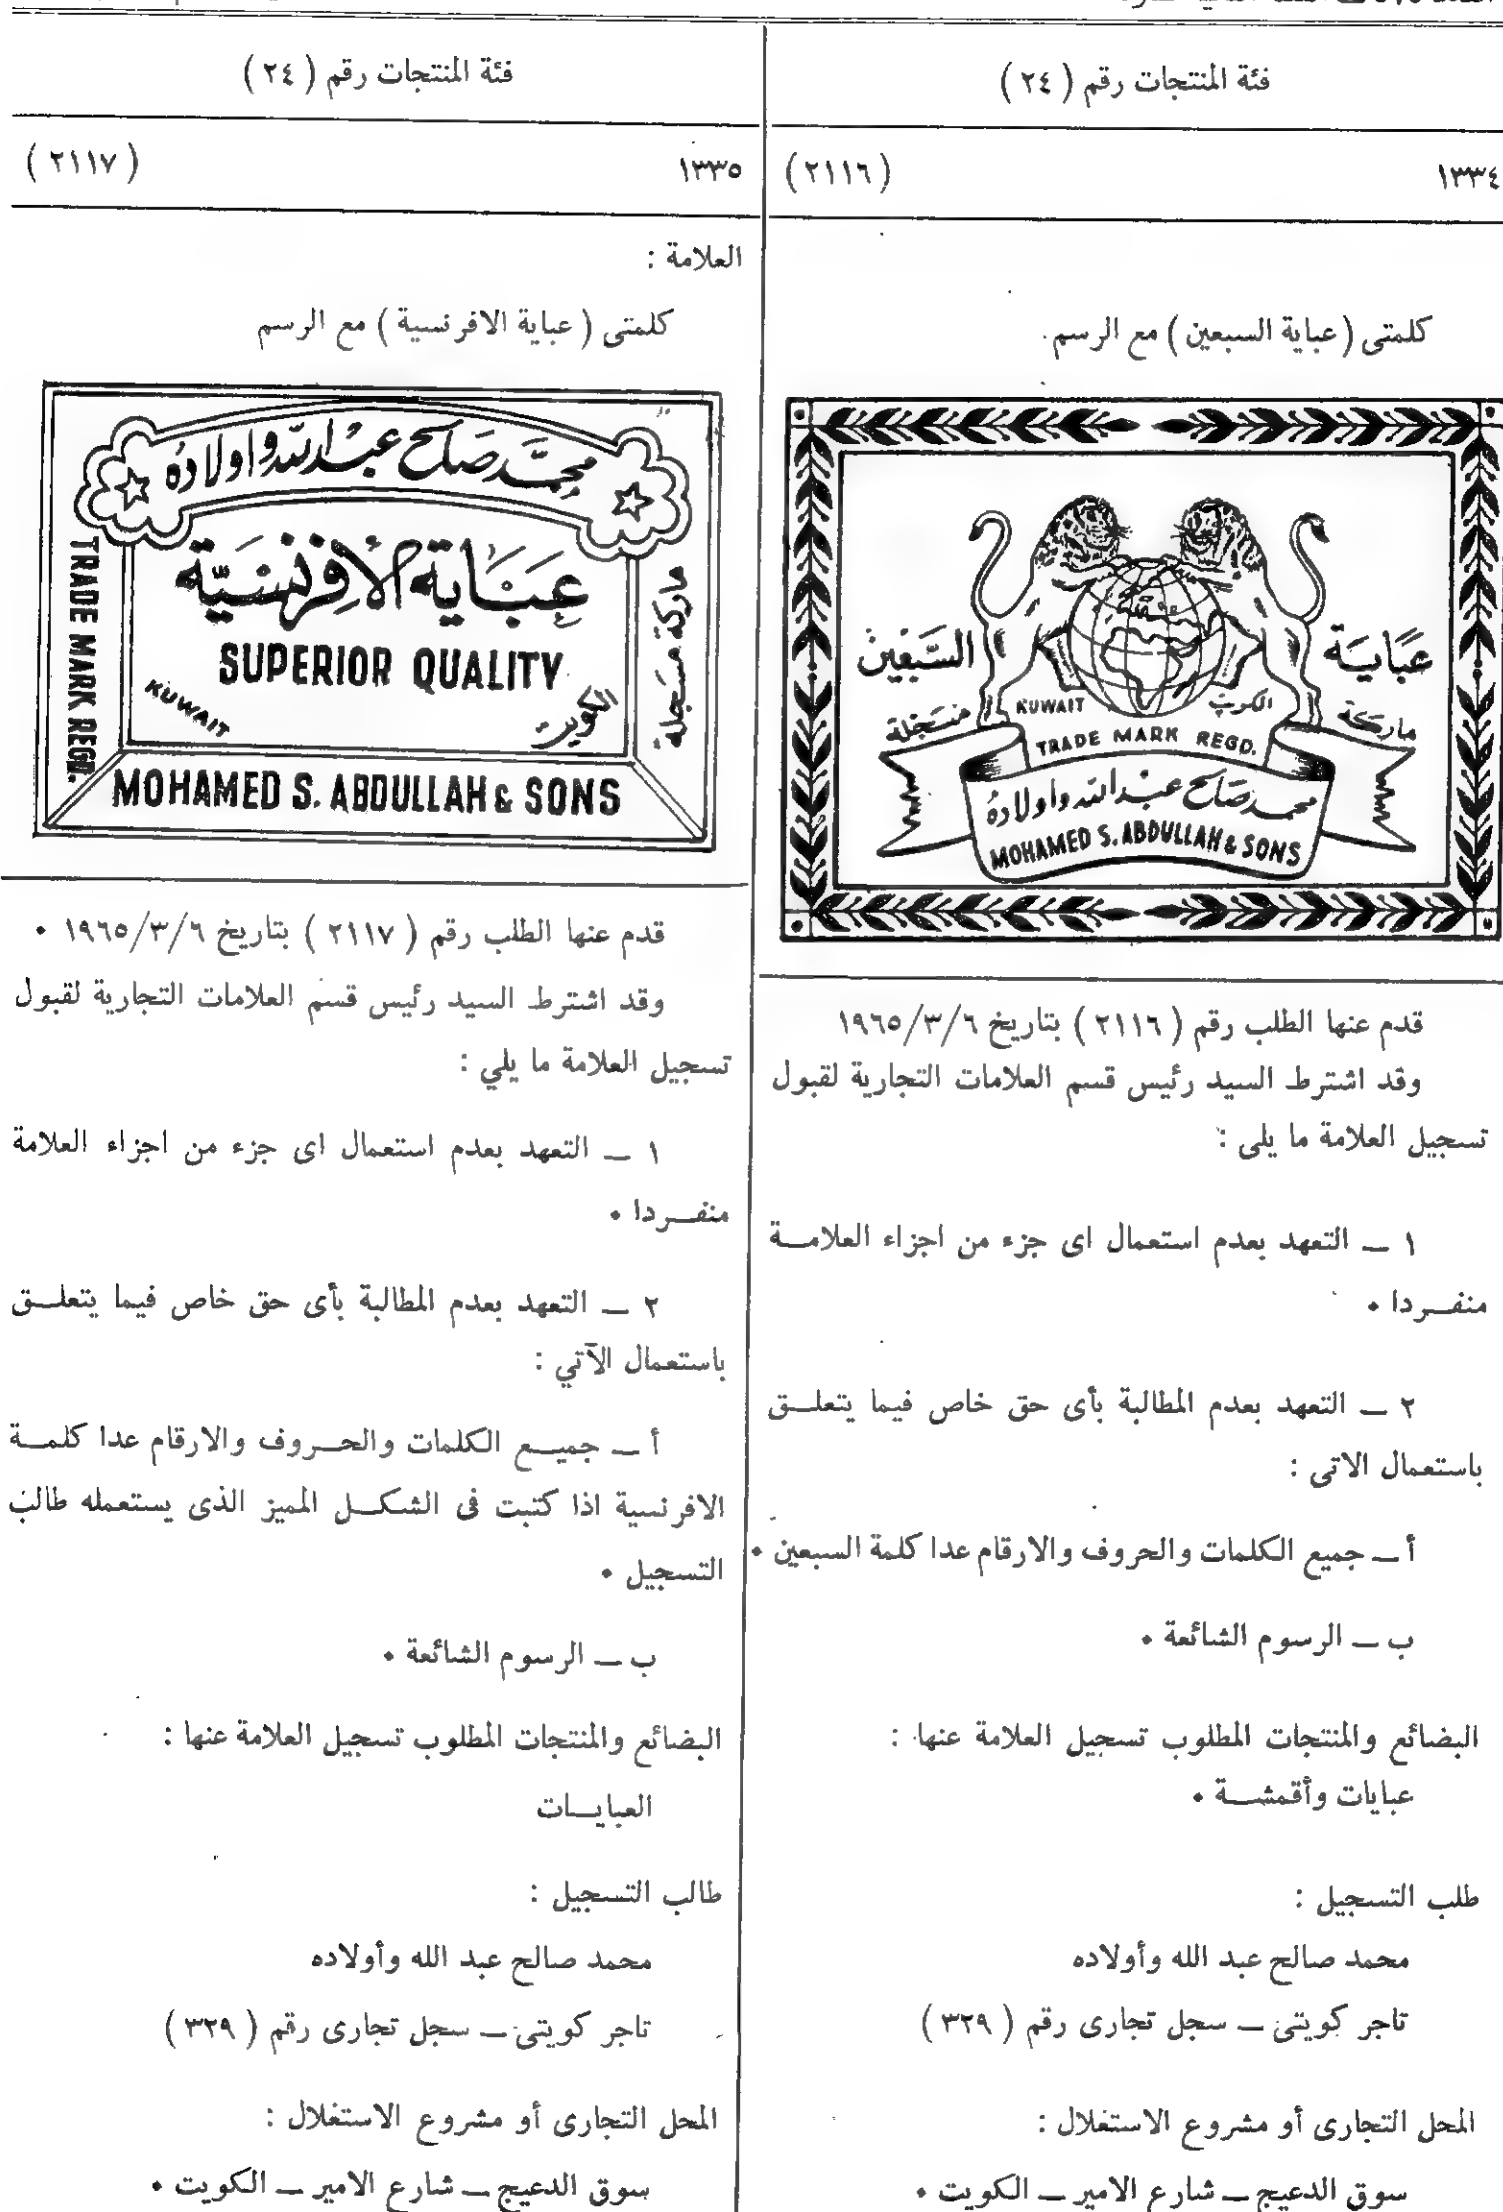 فئة المنتجات رقم ( ٢٤ )
١٣٣٤ ( ٢١١٦ )
كلمتى ( عباية السبعين ) مع الرسم
عباية السبعين
ماركة مسجلة
KUWAIT الكويت
TRADE MARK REGD.
محمد صالح عبد الله واولاده
MOHAMED S. ABDULLAH & SONS
قدم عنها الطلب رقم ( ٢١١٦ ) بتاريخ ١٩٦٥/٣/٦
وقد اشترط السيد رئيس قسم العلامات التجارية لقبول
تسجيل العلامة ما يلى :
١ ــ التعهد بعدم استعمال اى جزء من اجزاء العلامــة
منفــردا ٠
٢ ــ التعهد بعدم المطالبة بأى حق خاص فيما يتعلــق
باستعمال الاتى :
أ ــ جميع الكلمات والحروف والارقام عدا كلمة السبعين ٠
ب ــ الرسوم الشائعة ٠
البضائع والمنتجات المطلوب تسجيل العلامة عنها :
عبايات وأقمشــة ٠
طلب التسجيل :
محمد صالح عبد الله وأولاده
تاجر كويتى ــ سجل تجارى رقم ( ٣٢٩ )
المحل التجارى أو مشروع الاستغلال :
سوق الدعيج ــ شارع الامير ــ الكويت ٠
فئة المنتجات رقم ( ٢٤ )
١٣٣٥ ( ٢١١٧ )
العلامة :
كلمتى ( عباية الافرنسية ) مع الرسم
محمد صالح عبد الله واولاده
عباية الافرنسية
SUPERIOR QUALITY
KUWAIT الكويت
TRADE MARK REGD.
ماركة مسجلة
MOHAMED S. ABDULLAH & SONS
قدم عنها الطلب رقم ( ٢١١٧ ) بتاريخ ١٩٦٥/٣/٦ ٠
وقد اشترط السيد رئيس قسم العلامات التجارية لقبول
تسجيل العلامة ما يلي :
١ ــ التعهد بعدم استعمال اى جزء من اجزاء العلامة
منفــردا ٠
٢ ــ التعهد بعدم المطالبة بأى حق خاص فيما يتعلــق
باستعمال الآتي :
أ ــ جميــع الكلمات والحــروف والارقام عدا كلمــة
الافرنسية اذا كتبت فى الشكــل المميز الذى يستعمله طالب
التسجيل ٠
ب ــ الرسوم الشائعة ٠
البضائع والمنتجات المطلوب تسجيل العلامة عنها :
العبايــات
طالب التسجيل :
محمد صالح عبد الله وأولاده
تاجر كويتى ــ سجل تجارى رقم ( ٣٢٩ )
المحل التجارى أو مشروع الاستغلال :
سوق الدعيج ــ شارع الامير ــ الكويت ٠